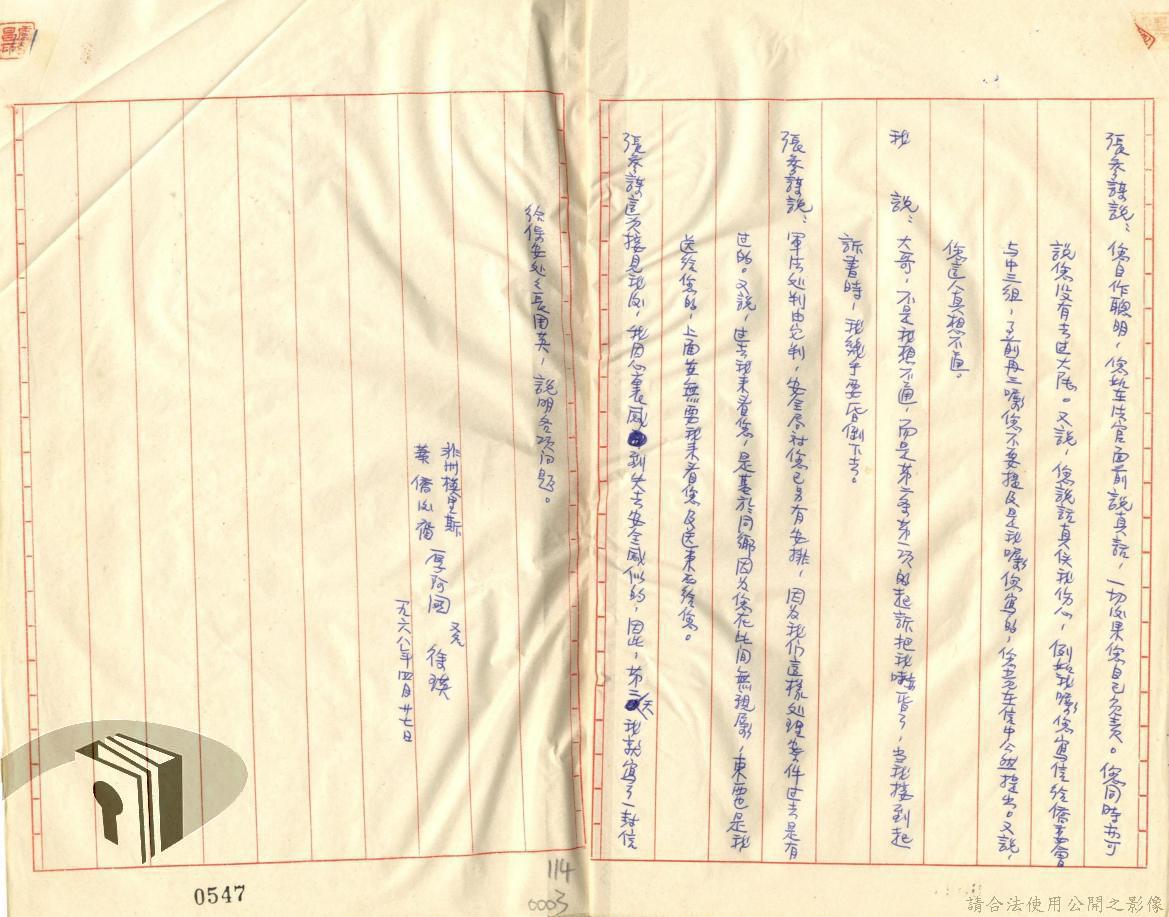 張參謀說：您自作聰明，您敢在法官面前說真話，一切後果您自己負責。您同時亦可
說您沒有去过大陸。又說，您說話真使我伤心，例如我囑您寫信給僑委會
与中三組，之前再三囑您不要提及是我囑您寫的，您竟在信中公然提出。又說，
您這人真想不通。
我　說：大哥，不是我想不通，而是第二条第一項的起訴把我嚇昏了，当我接到起
訴書時，我幾乎要昏倒下去。
張參謀說：軍法处判由它判，安全局对您已另有安排，因为我们這樣处理案件过去是有
过的。又說，过去我来看您，是基於同鄉因为您在此间無親屬，東西也是我
送給您的，上面並無要我来看您及送東西給您。
張參謀這次接見我後，我因心裏感到失去安全感似的，因此，第二天我就寫了一封信
給保安处之長周英，説明各項问题。
非州模里斯
華僑後裔　厚阿國　又先　徐瑛
一九六八年四月廿七日
0547
114
0003
請合法使用公開之影像